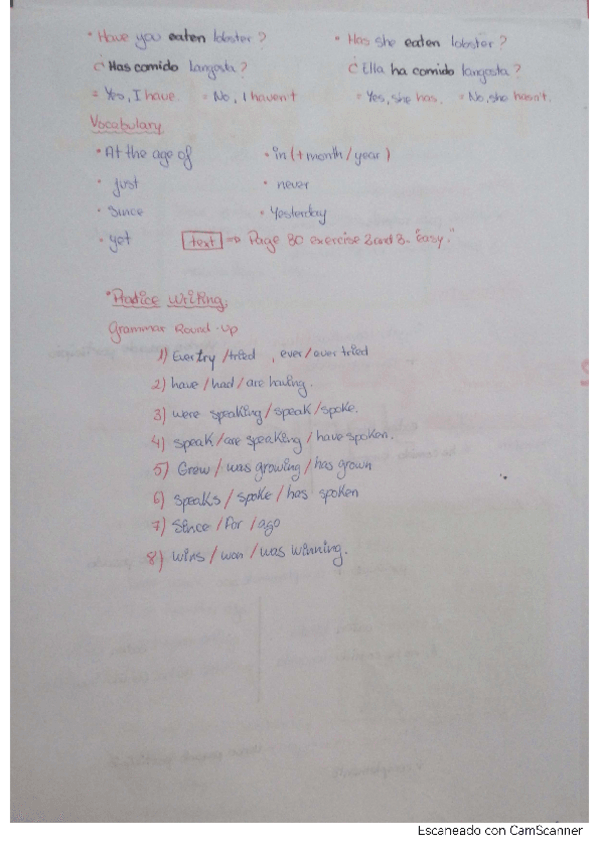 • Have you eaten lobster? • Has she eaten lobster?
¿Has comido langosta? ¿Ella ha comido langosta?
= Yes, I have. = No, I haven't = Yes, she has. = No, she hasn't.
Vocabulary
• At the age of • in (+ month / year)
• just • never
• Since • Yesterday
• yet text => Page 80 exercise 2 and 3. "easy."
• Practice Writing.
Grammar Round-Up
1) Ever try / tried , ever / over tried
2) have / had / are having.
3) were speaking / speak / spoke.
4) speak / are speaking / have spoken.
5) Grew / was growing / has grown
6) speaks / spoke / has spoken
7) Since / for / ago
8) wins / won / was winning.
Escaneado con CamScanner